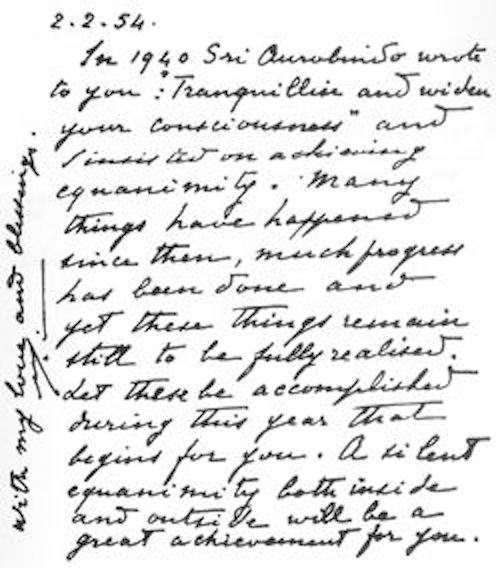 2.2.54.
In 1940 Sri Aurobindo wrote
to you : "Tranquillise and widen
your consciousness" and
I insisted on achieving
equanimity. Many
things have happened
since then, much progress
has been done and
yet these things remain
still to be fully realised.
Let these be accomplished
during this year that
begins for you. A silent
equanimity both inside
and outside will be a
great achievement for you.
with my love and blessings.